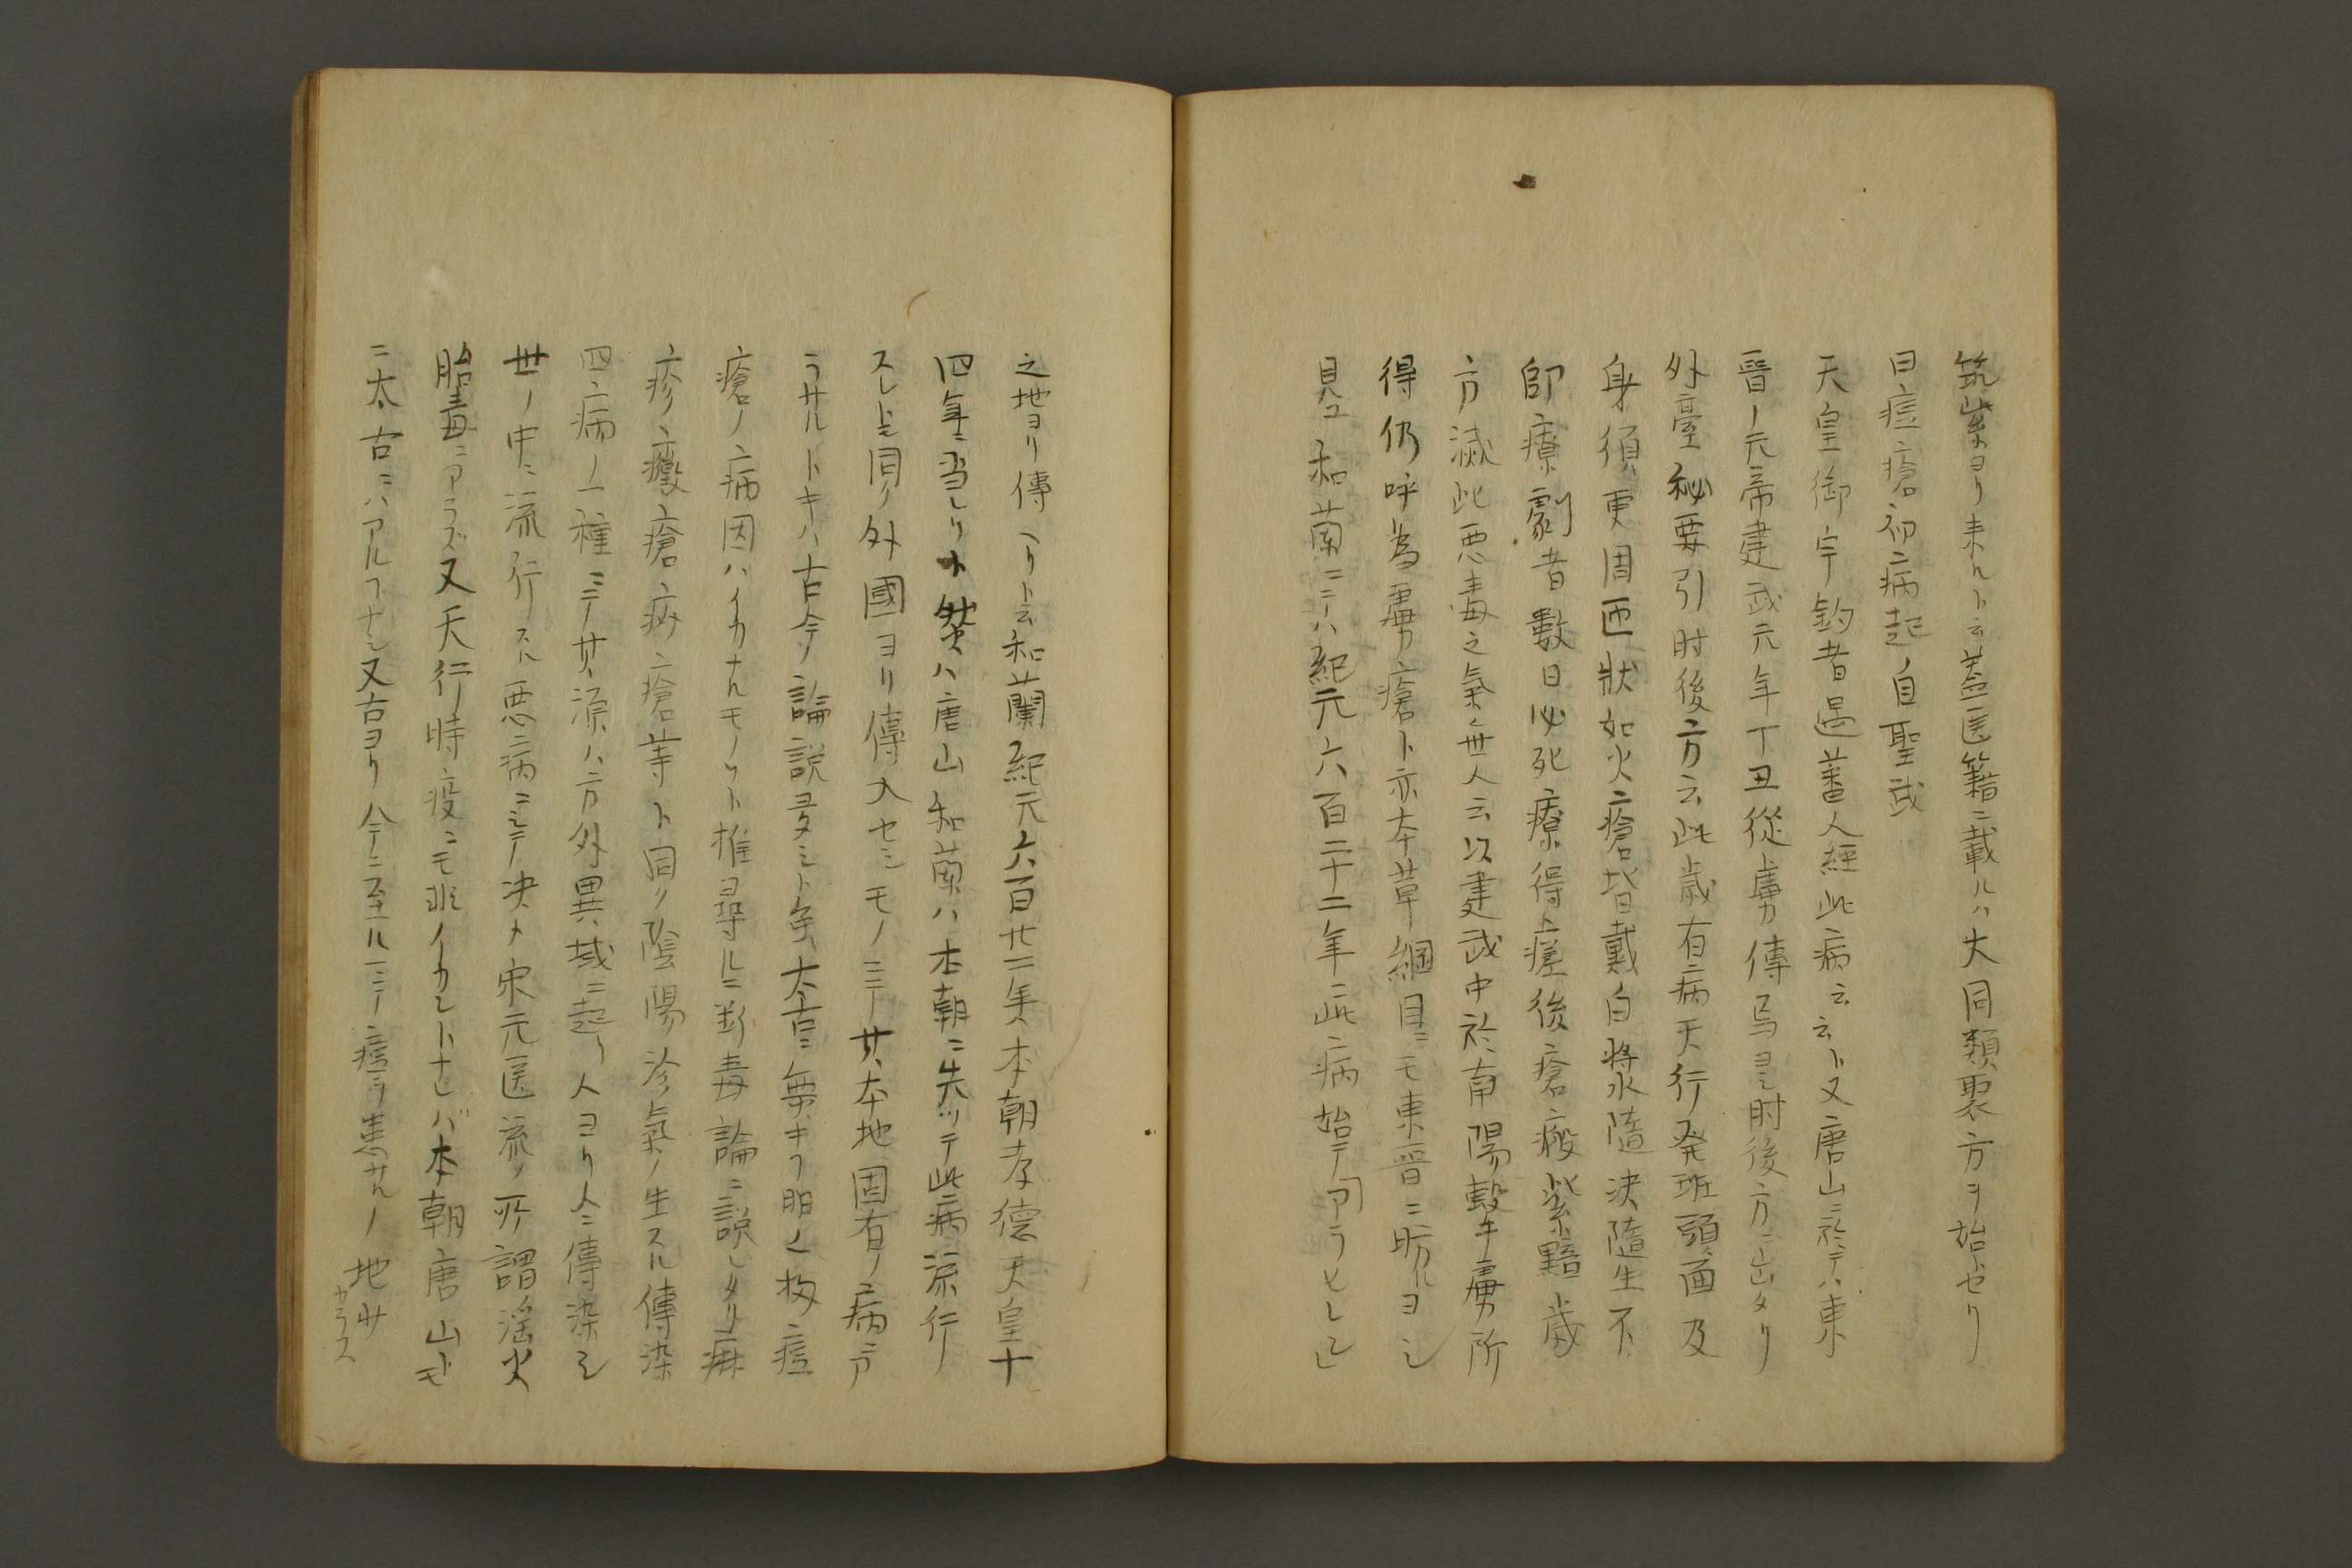 筑紫ヨリ来ルト云蓋医籍ニ載ルハ大同類聚方ヲ始トセリ
曰痘瘡初病起自聖武
天皇御宇釣者遇蕃人經此病云云ト又唐山ニ於テハ東
晋ノ元帝建武元年丁丑從虜傳ルヨシ肘後方ニ出タリ
外臺秘要引肘後方云此歳有病天行発班頭面及
身須更周匝狀如火瘡皆戴白漿隨決隨生不
即療劇者數日必死療得瘥後瘡瘢紫黯歲
方滅此悪毒之氣世人云以建武中於南陽擊虜所
得仍呼為虜瘡ト亦本草綱目ニモ東晋ニ昉ルヨシ
見ユ和蘭ニテハ紀元六百二十二年ニ此病始テ
之地ヨリ傳ハリト云和蘭紀元六百廿二年ハ本朝孝徳天皇十
四年ニ当レリト然ハ唐山和蘭ハ本朝ニ先ツテ此病流行
スレトモ同ク外國ヨリ傳入セシモノニテ其本地固有ノ病ニア
ラサルトキハ古今ノ論説多シト矣太古ニ無キヿ明ケシ扨痘
瘡ノ病因ハイカナルモノソト推尋ルニ断毒論ニ説レタリ麻
疹黴瘡疥瘡等ト同ク陰陽沴氣ノ生スル傳染
四病ノ一種ニテ其源ハ方外異域ニ起リ人ヨリ人ニ傳染シ
世ノ中ニ流行スル悪病ニシテ决メ宋元医流ノ所謂滛火
胎毒ニアラズ又天行時疫ニモ非ノイカントナレバ本朝唐山トモ
ニ太古ニハアルヿナシ又古ヨリ今ニ至ルニテ痘ヲ患サルノ地少
カラス